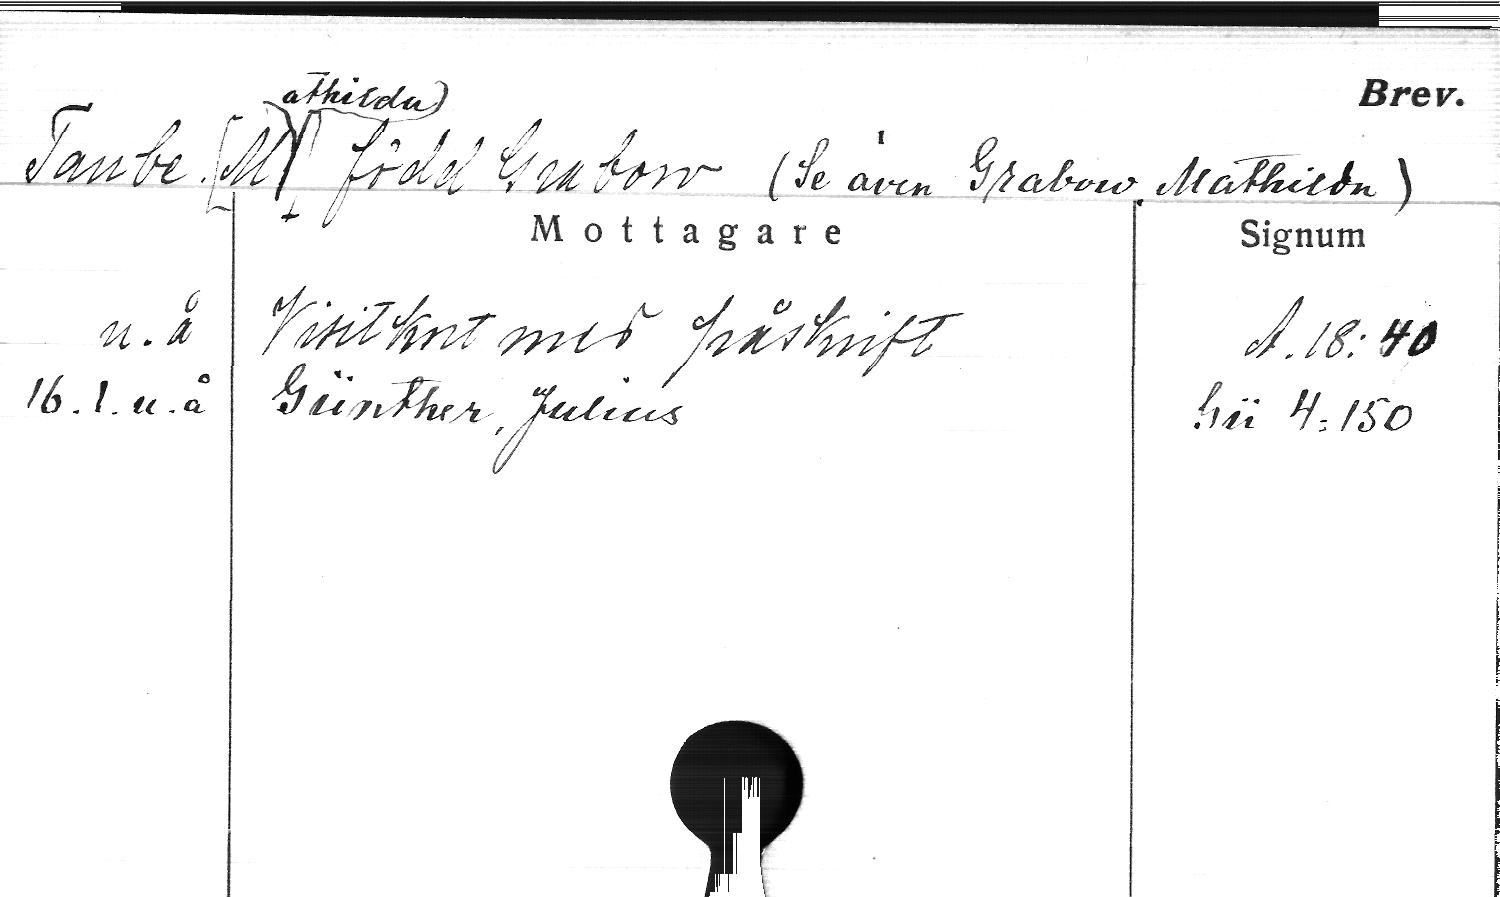 Brev.
Taube [M(athilda)] född Grabow (Se även Grabow, Mathilda)
Mottagare Signum
u.å Visitkort med påskrift A. 18: 40
16.1.u.å Günther, Julius Gü 4:150